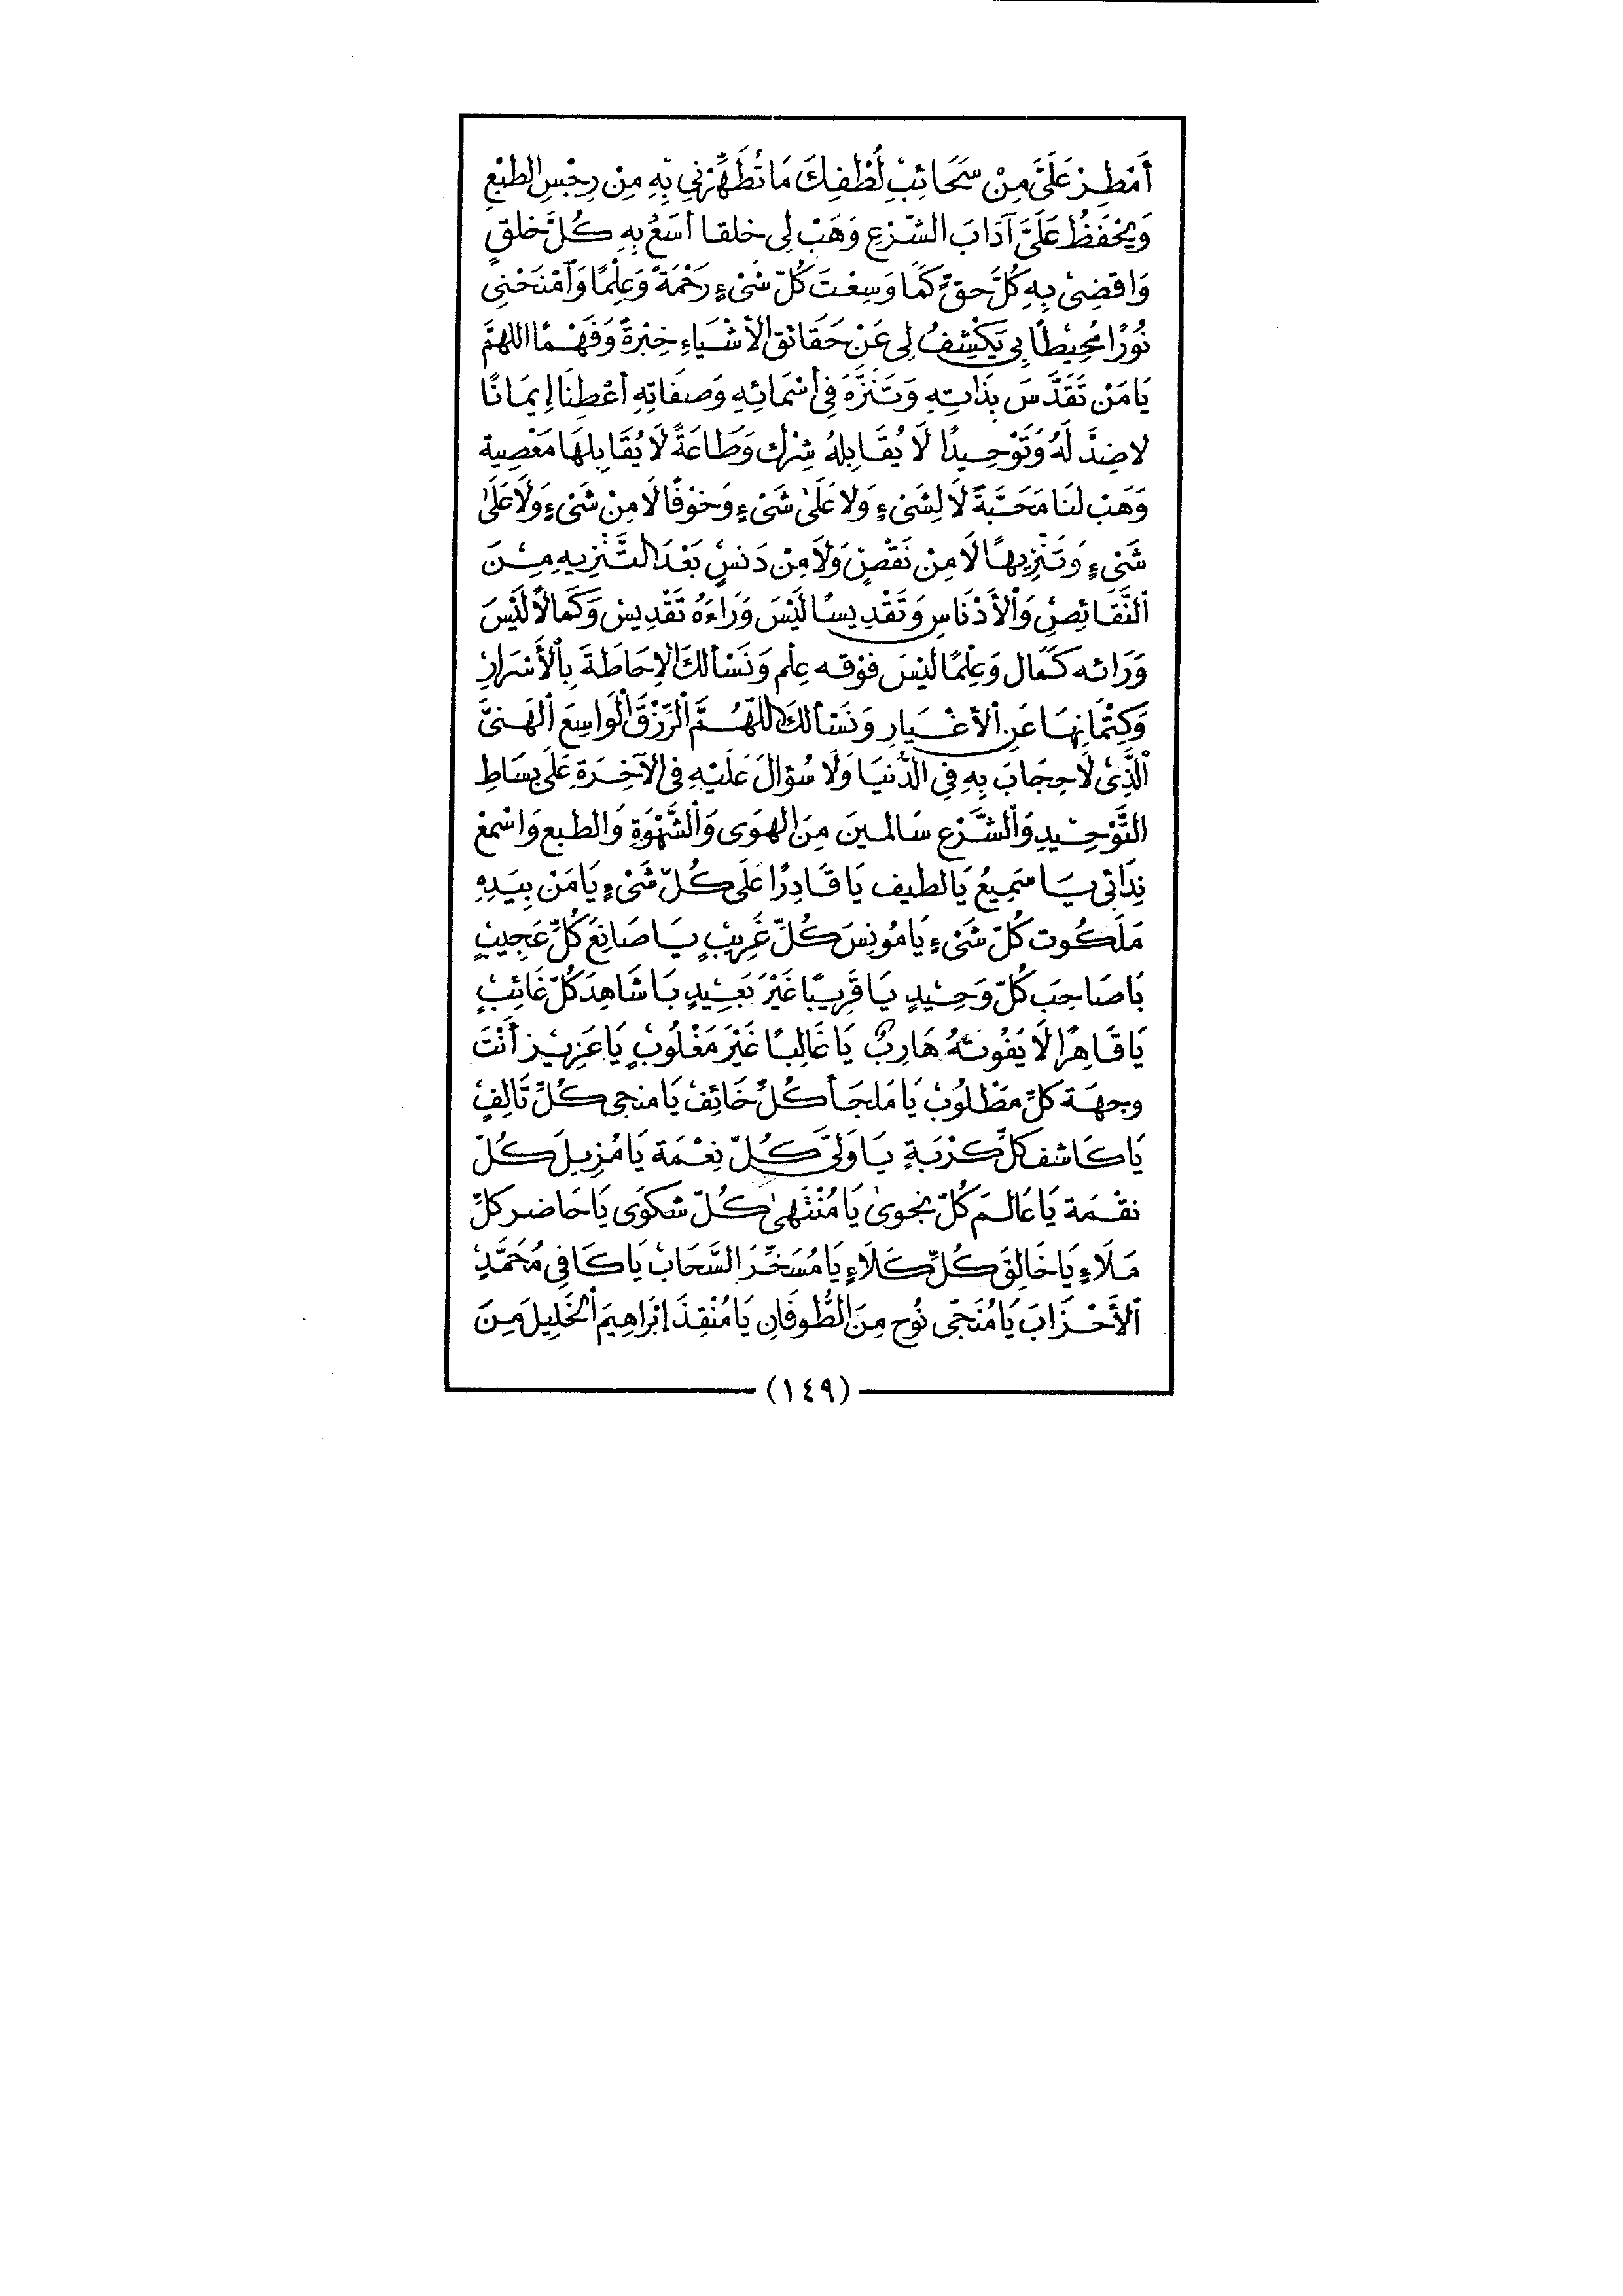 أَمْطِرْ عَلَيَّ مِنْ سَحَائِبِ لُطْفِكَ مَا تُطَهِّرْنِي بِهِ مِنْ رِجْسِ الطَّبْعِ
وَيَحْفَظُ عَلَيَّ آدَابَ الشَّرْعِ وَهَبْ لِي خلقا أسَعُ بِهِ كُلَّ خلقٍ
وَاقضِى بِهِ كُلَّ حقٍّ كَمَا وَسِعْتَ كُلّ شَىْءٍ رَحْمَةً وَعِلْمًا وَٱمْنَحْنِى
نُورًا مُحِيطًا بِي يَكْشِفُ لِى عَنْ حَقَائق الأشْيَاءِ خِبْرَةً وَفَهْمًا اللهمَّ
يَا مَنْ تَقَدَّسَ بِذَاتِهِ وَتَنَزَّهَ فِى أسْمَائِهِ وَصفَاتِهِ أعْطِنَا إِيمَانًا
لا ضِدَّ لَهُ وَتَوْحِيدًا لَا يُقَابِلهُ شِرْك وَطَاعَةً لَا يُقَابِلهَا مَعْصِية
وَهَبْ لنَا مَحَبَّةً لَا لِشَىْءٍ وَلا عَلَىٰ شَىْءٍ وَخَوْفًا لَا مِنْ شَىْءٍ وَلَا عَلَىٰ
شَىْءٍ وَتَنْزِيهًا لَا مِنْ نَقْصٍ وَلَا مِنْ دَنسٍ بَعْدَ التَّنْزِيهِ مِنَ
ٱلنَّقَائِصِ وَٱلأَدْنَاسِ وَتَقْدِيسًا لَيْسَ وَرَاءَهُ تَقْدِيسْ وَكَمَالًا لَيْسَ
وَرَائه كَمَال وَعِلْمًا لَيْسَ فوْقه عِلْم وَنَسْألكَ الإِحَاطَةَ بِٱلأَسْرَارِ
وَكِتْمَانِهَا عَنِ ٱلأغْيَارِ وَنَسْألكَ اللّٰهُمَّ ٱلرِّزْقَ ٱلْوَاسِعَ ٱلهَنىَّ
ٱلَّذِى لَا حِجَابَ بِهِ فِي الدُّنيَا وَلَا سُؤالَ عَلَيْهِ فى الآخِرَةِ عَلَى بسَاطِ
التَّوْحِيدِ وَٱلشَّرْعِ سَالمينَ مِنَ الهوَى وَٱلشَّهْوَةِ وَالطبع وَاسْمعْ
نِدَائى يَا سَمِيعُ يَا لطيف يَا قَادِرًا عَلَى كُلّ شَىْءٍ يَا مَنْ بِيَدِهِ
مَلَكُوت كُلّ شَىْءٍ يَا مُونِسَ كُلّ غَرِيبٍ يَا صَانِعَ كُلِّ عَجِيبٍ
يَا صَاحِبَ كُلّ وَحِيدٍ يَا قَرِيبًا غَيْرَ بَعِيدٍ يَا شَاهِدَ كُلّ غَائِبٍ
يَا قَاهِرًا لَا يَفُوتهُ هَارِبٌ يَا غَالِبًا غَيْرَ مَغْلُوبٍ يَا عَزِيز أَنْتَ
وجهَة كلِّ مَطْلُوبْ يَا مَلجَأ كُلِّ خَائِفْ يَا منجى كُلِّ تَالِفٍ
يَا كَاشف كلِّ كَرْبَةٍ يَا وَلىَّ كُلّ نِعْمَة يَا مُزِيلَ كُلّ
نقْمَة يَا عَالمَ كُلّ نجوىٰ يَا مُنْتَهىٰ كُلّ شكوَى يَا حَاضر كلِّ
مَلَاءٍ يَا خَالِقَ كُلِّ كَلَاءٍ يَا مُسَخِّرَ السَّحَابْ يَا كَافِى مُحَمَّدٍ
ٱلأَحْزَابَ يَا مُنَجّى نُوح مِنَ الطُّوفَانِ يَا مُنْقِذَ إبْرَاهِيمَ ٱلخَلِيلَ مِنَ
(١٤٩)